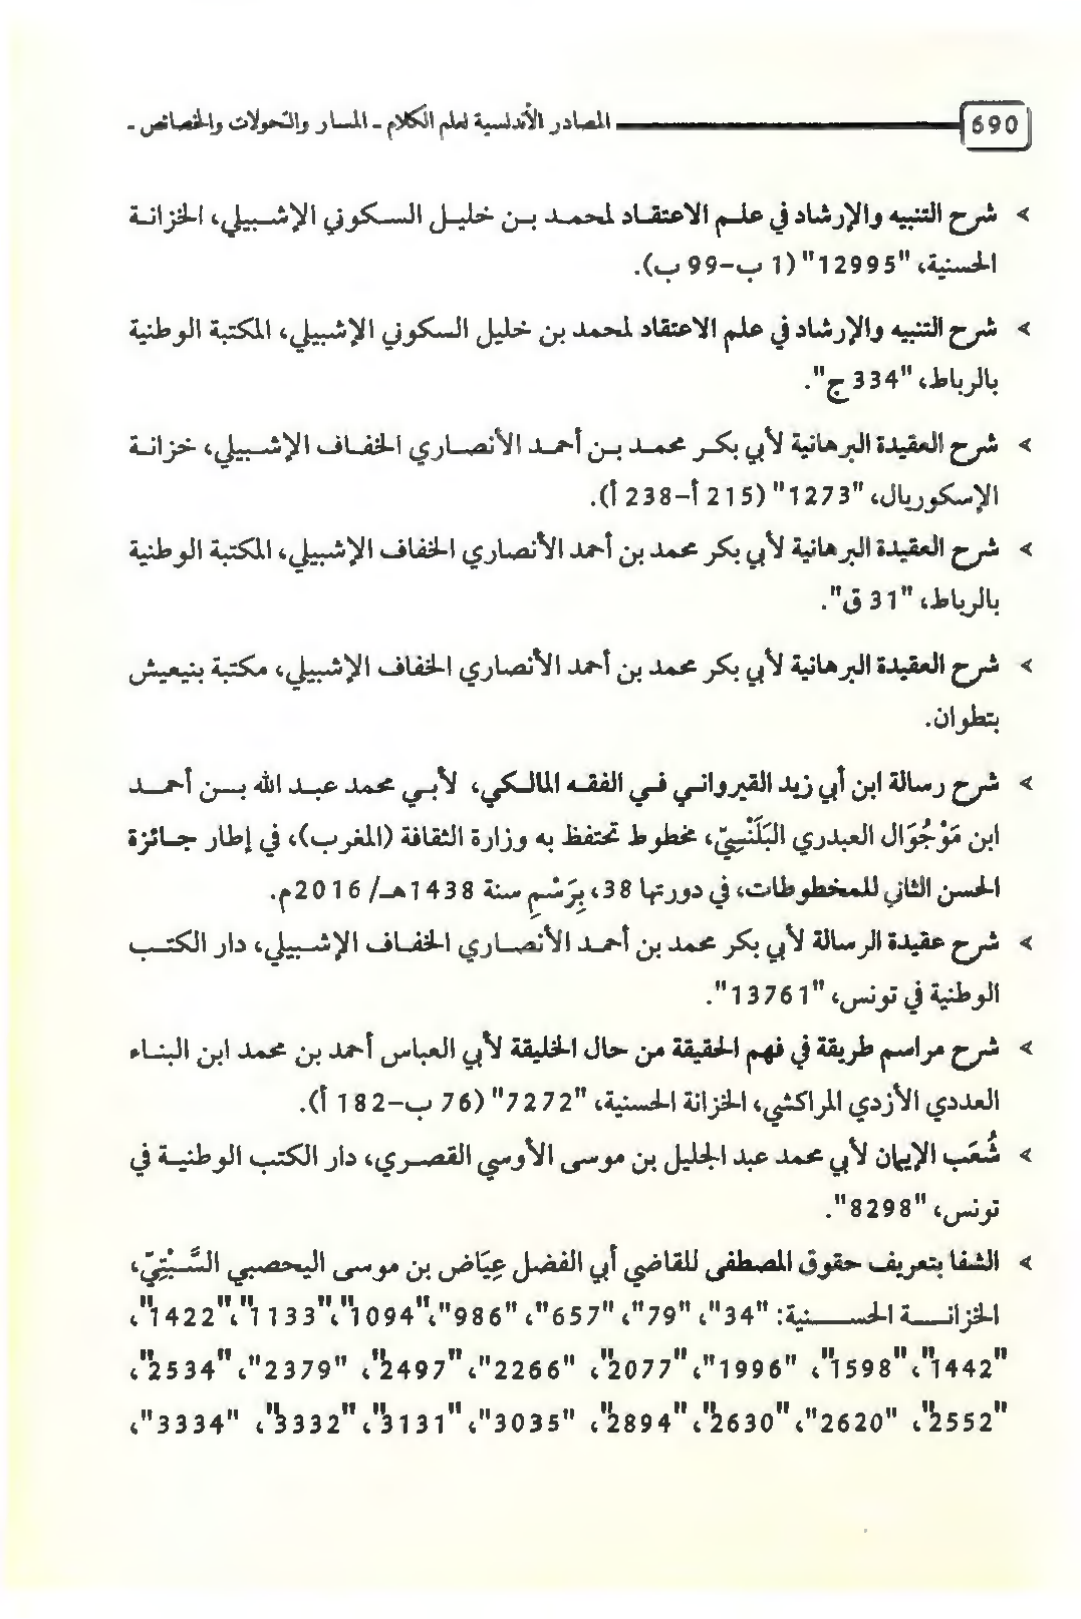 690 المصادر الأندلسية لعلم الكلام - المسار والتحولات والخصائص -
> شرح التنبيه والإرشاد في علم الاعتقاد لمحمد بن خليل السكوني الإشبيلي، الخزانة
الحسنية، "12995" (1 ب-99 ب).
> شرح التنبيه والإرشاد في علم الاعتقاد لمحمد بن خليل السكوني الإشبيلي، المكتبة الوطنية
بالرباط، "334 ج".
> شرح العقيدة البرهانية لأبي بكر محمد بن أحمد الأنصاري الخفاف الإشبيلي، خزانة
الإسكوريال، "1273" (215 أ-238 أ).
> شرح العقيدة البرهانية لأبي بكر محمد بن أحمد الأنصاري الخفاف الإشبيلي، المكتبة الوطنية
بالرباط، "31 ق".
> شرح العقيدة البرهانية لأبي بكر محمد بن أحمد الأنصاري الخفاف الإشبيلي، مكتبة بنيعيش
بتطوان.
> شرح رسالة ابن أبي زيد القيرواني في الفقه المالكي، لأبي محمد عبد الله بن أحمد
ابن مَوْجُوَال العبدري البَلَنْسِيّ، مخطوط تحتفظ به وزارة الثقافة (المغرب)، في إطار جائزة
الحسن الثاني للمخطوطات، في دورتها 38، بِرَسْمِ سنة 1438هـ/ 2016م.
> شرح عقيدة الرسالة لأبي بكر محمد بن أحمد الأنصاري الخفاف الإشبيلي، دار الكتب
الوطنية في تونس، "13761".
> شرح مراسم طريقة في فهم الحقيقة من حال الخليقة لأبي العباس أحمد بن محمد ابن البناء
العددي الأزدي المراكشي، الخزانة الحسنية، "7272" (76 ب-182 أ).
> شُعَب الإيمان لأبي محمد عبد الجليل بن موسى الأوسي القصري، دار الكتب الوطنية في
تونس، "8298".
> الشفا بتعريف حقوق المصطفى للقاضي أبي الفضل عِيَاض بن موسى اليحصبي السَّبْتِيّ،
الخزانة الحسنية: "34"، "79"، "657"، "986"، "1094"، "1133"، "1422"،
"1442"، "1598"، "1996"، "2077"، "2266"، "2497"، "2379"، "2534"،
"2552"، "2620"، "2630"، "2894"، "3035"، "3131"، "3332"، "3334"،